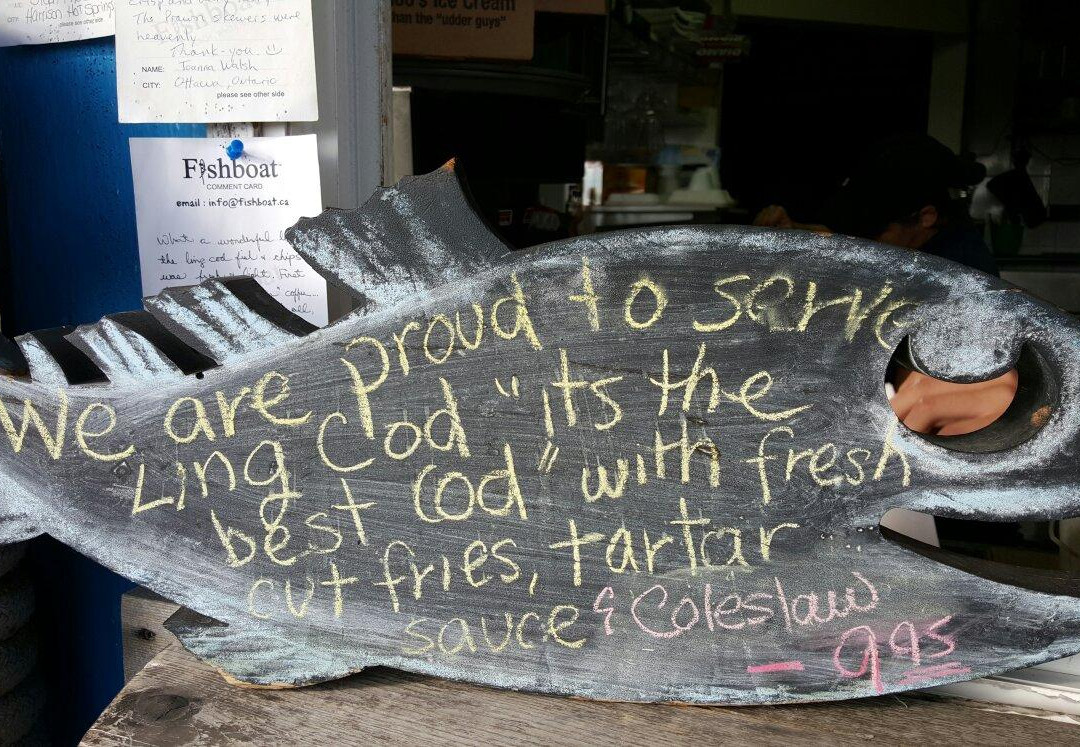 Harrison Hot Springs
please see other side
The Prawn skewers were
heavenly.
Thank-you.
NAME: Joanna Walsh
CITY: Ottawa, Ontario
please see other side
's Ice Cream
han the "udder guys"
Fishboat
COMMENT CARD
email : info@fishboat.ca
What a wonderful
the ling cod fish & chips
was fresh & light. First
coffee...
all,
We are proud to serve
Ling Cod "its the
best Cod" with fresh
cut fries, tartar
sauce & Coleslaw
- 9.95